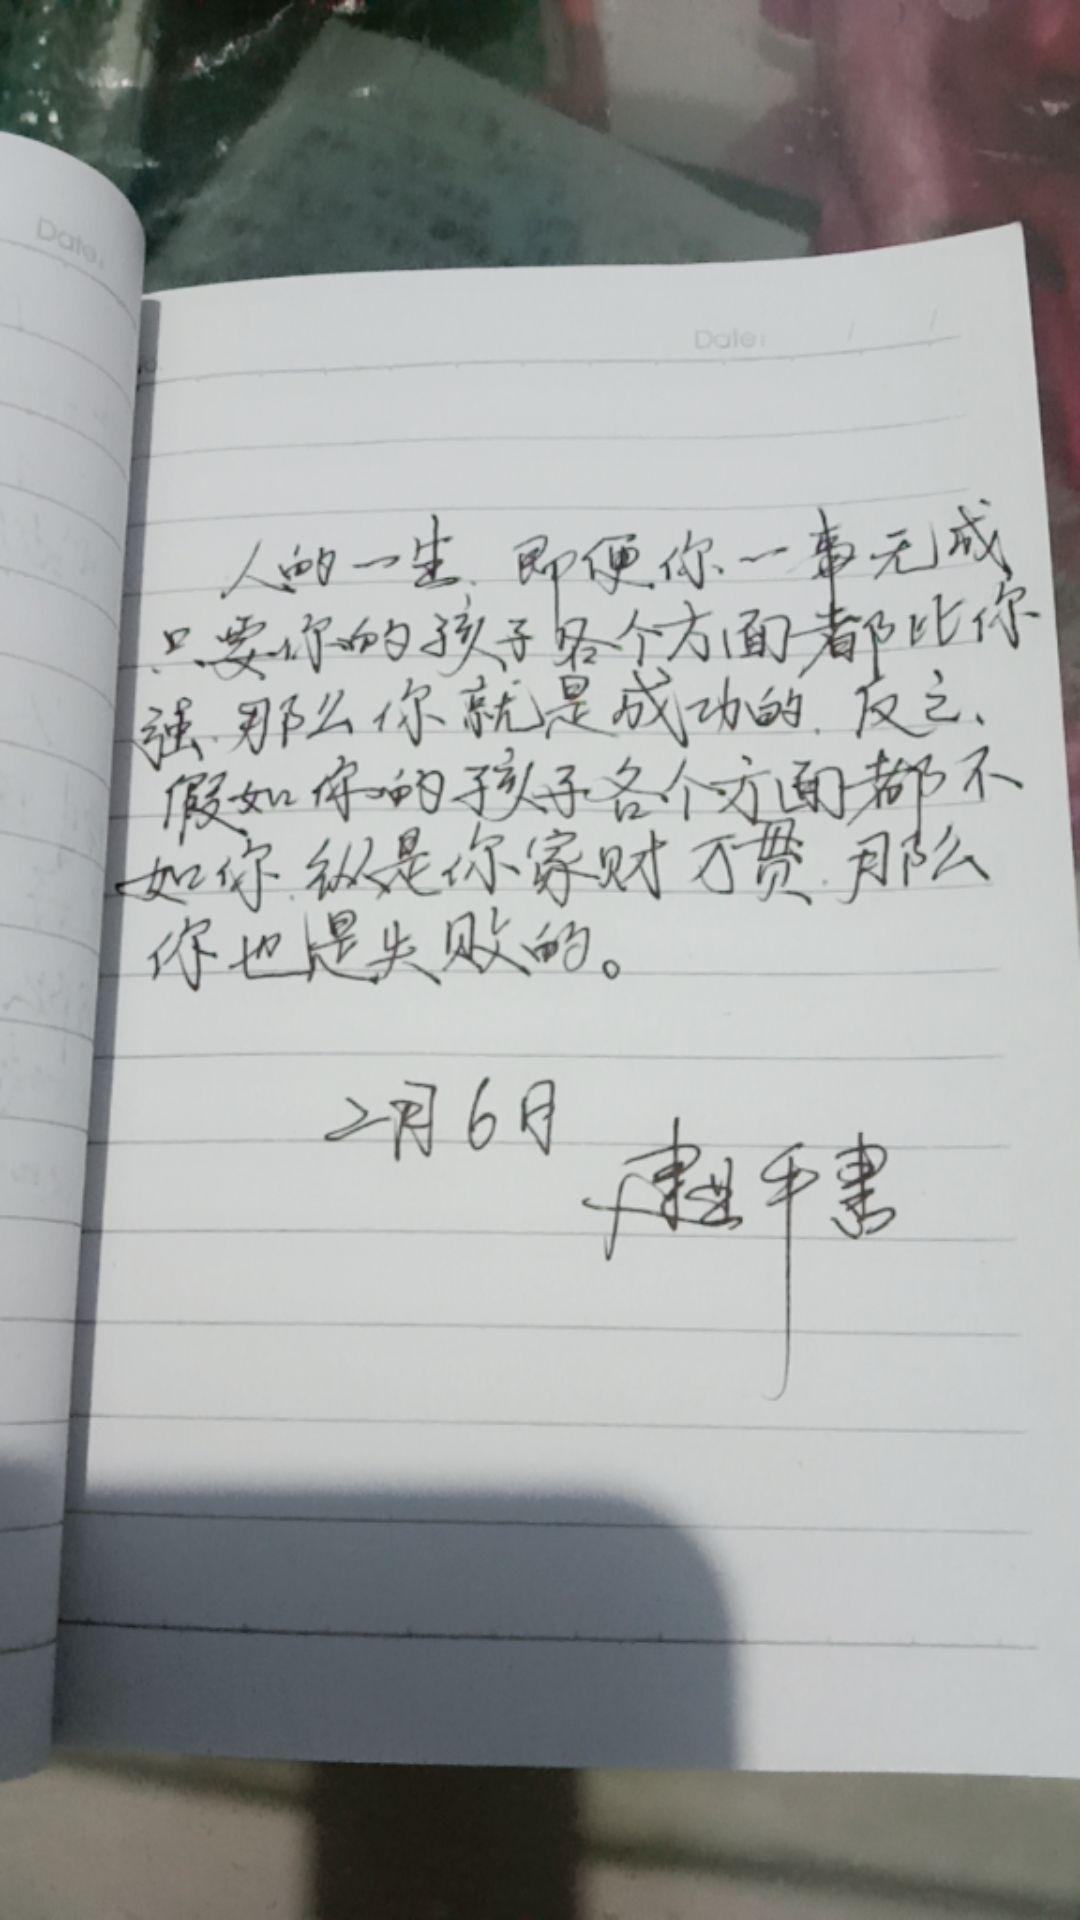 Date:
Date: / /
人的一生,即便你一事无成
只要你的孩子各个方面都比你
强,那么你就是成功的,反之、
假如你的孩子各个方面都不
如你,纵是你家财万贯,那么
你也是失败的。
2月6日